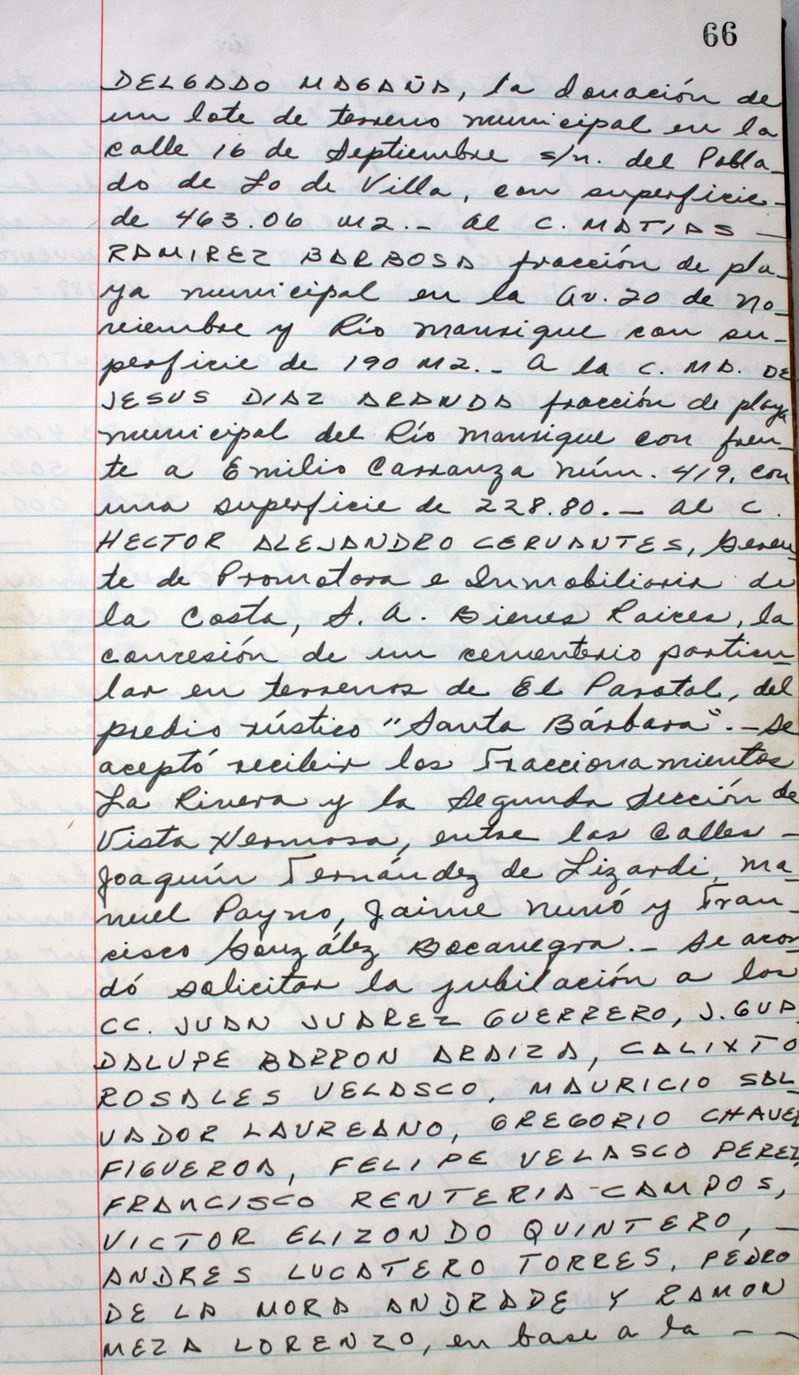 66
DELGADO MAGAÑA, la donación de
un lote de terreno municipal en la
calle 16 de Septiembre s/n. del Pobla_
do de Lo de Villa, con superficie-
de 463.06 m2.- Al C. MATIAS -
RAMIREZ BARBOSA fracción de pla_
ya municipal en la Av. 20 de No-
viembre y Río Manrique con su-
perficie de 190 M2.- A la C. MA. DE
JESUS DIAZ ARANDA fracción de playa
municipal del Río Manrique con fren_
te a Emilio Carranza Núm. 419, con
una superficie de 228.80.- Al C.
HECTOR ALEJANDRO CERVANTES, Geren_
te de Promotora e Inmobiliaria de
la Costa, S. A. Bienes Raices, la
concesión de un cementerio particu_
lar en terrenos de El Parotal, del
predio rústico "Santa Bárbara".- Se
aceptó recibir los Fraccionamientos
La Rivera y la Segunda Sección de
Vista Hermosa, entre las Calles -
Joaquín Fernández de Lizardi, Ma-
nuel Payno, Jaime Nunó y Fran-
cisco González Bocanegra.- Se acor_
dó solicitar la jubilación a los
CC. JUAN JUAREZ GUERRERO, J. GUA_
DALUPE BARRON ARAIZA, CALIXTO
ROSALES VELASCO, MAURICIO SAL_
VADOR LAUREANO, GREGORIO CHAVEZ
FIGUEROA, FELIPE VELASCO PEREZ,
FRANCISCO RENTERIA CAMPOS,
VICTOR ELIZONDO QUINTERO, -
ANDRES LUCATERO TORRES, PEDRO
DE LA MORA ANDRADE Y RAMON
MEZA LORENZO, en base a la - -